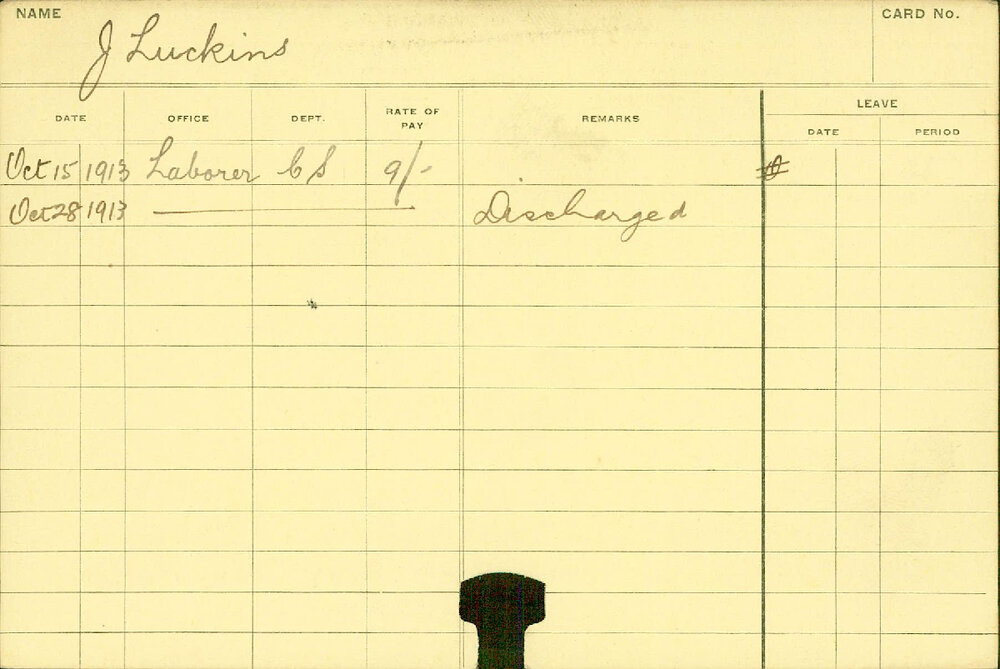 NAME J Luckins CARD No.
LEAVE
DATE OFFICE DEPT. RATE OF PAY REMARKS DATE PERIOD
Oct 15 1913 Laborer CS 9/-
Oct 28 1913 Discharged